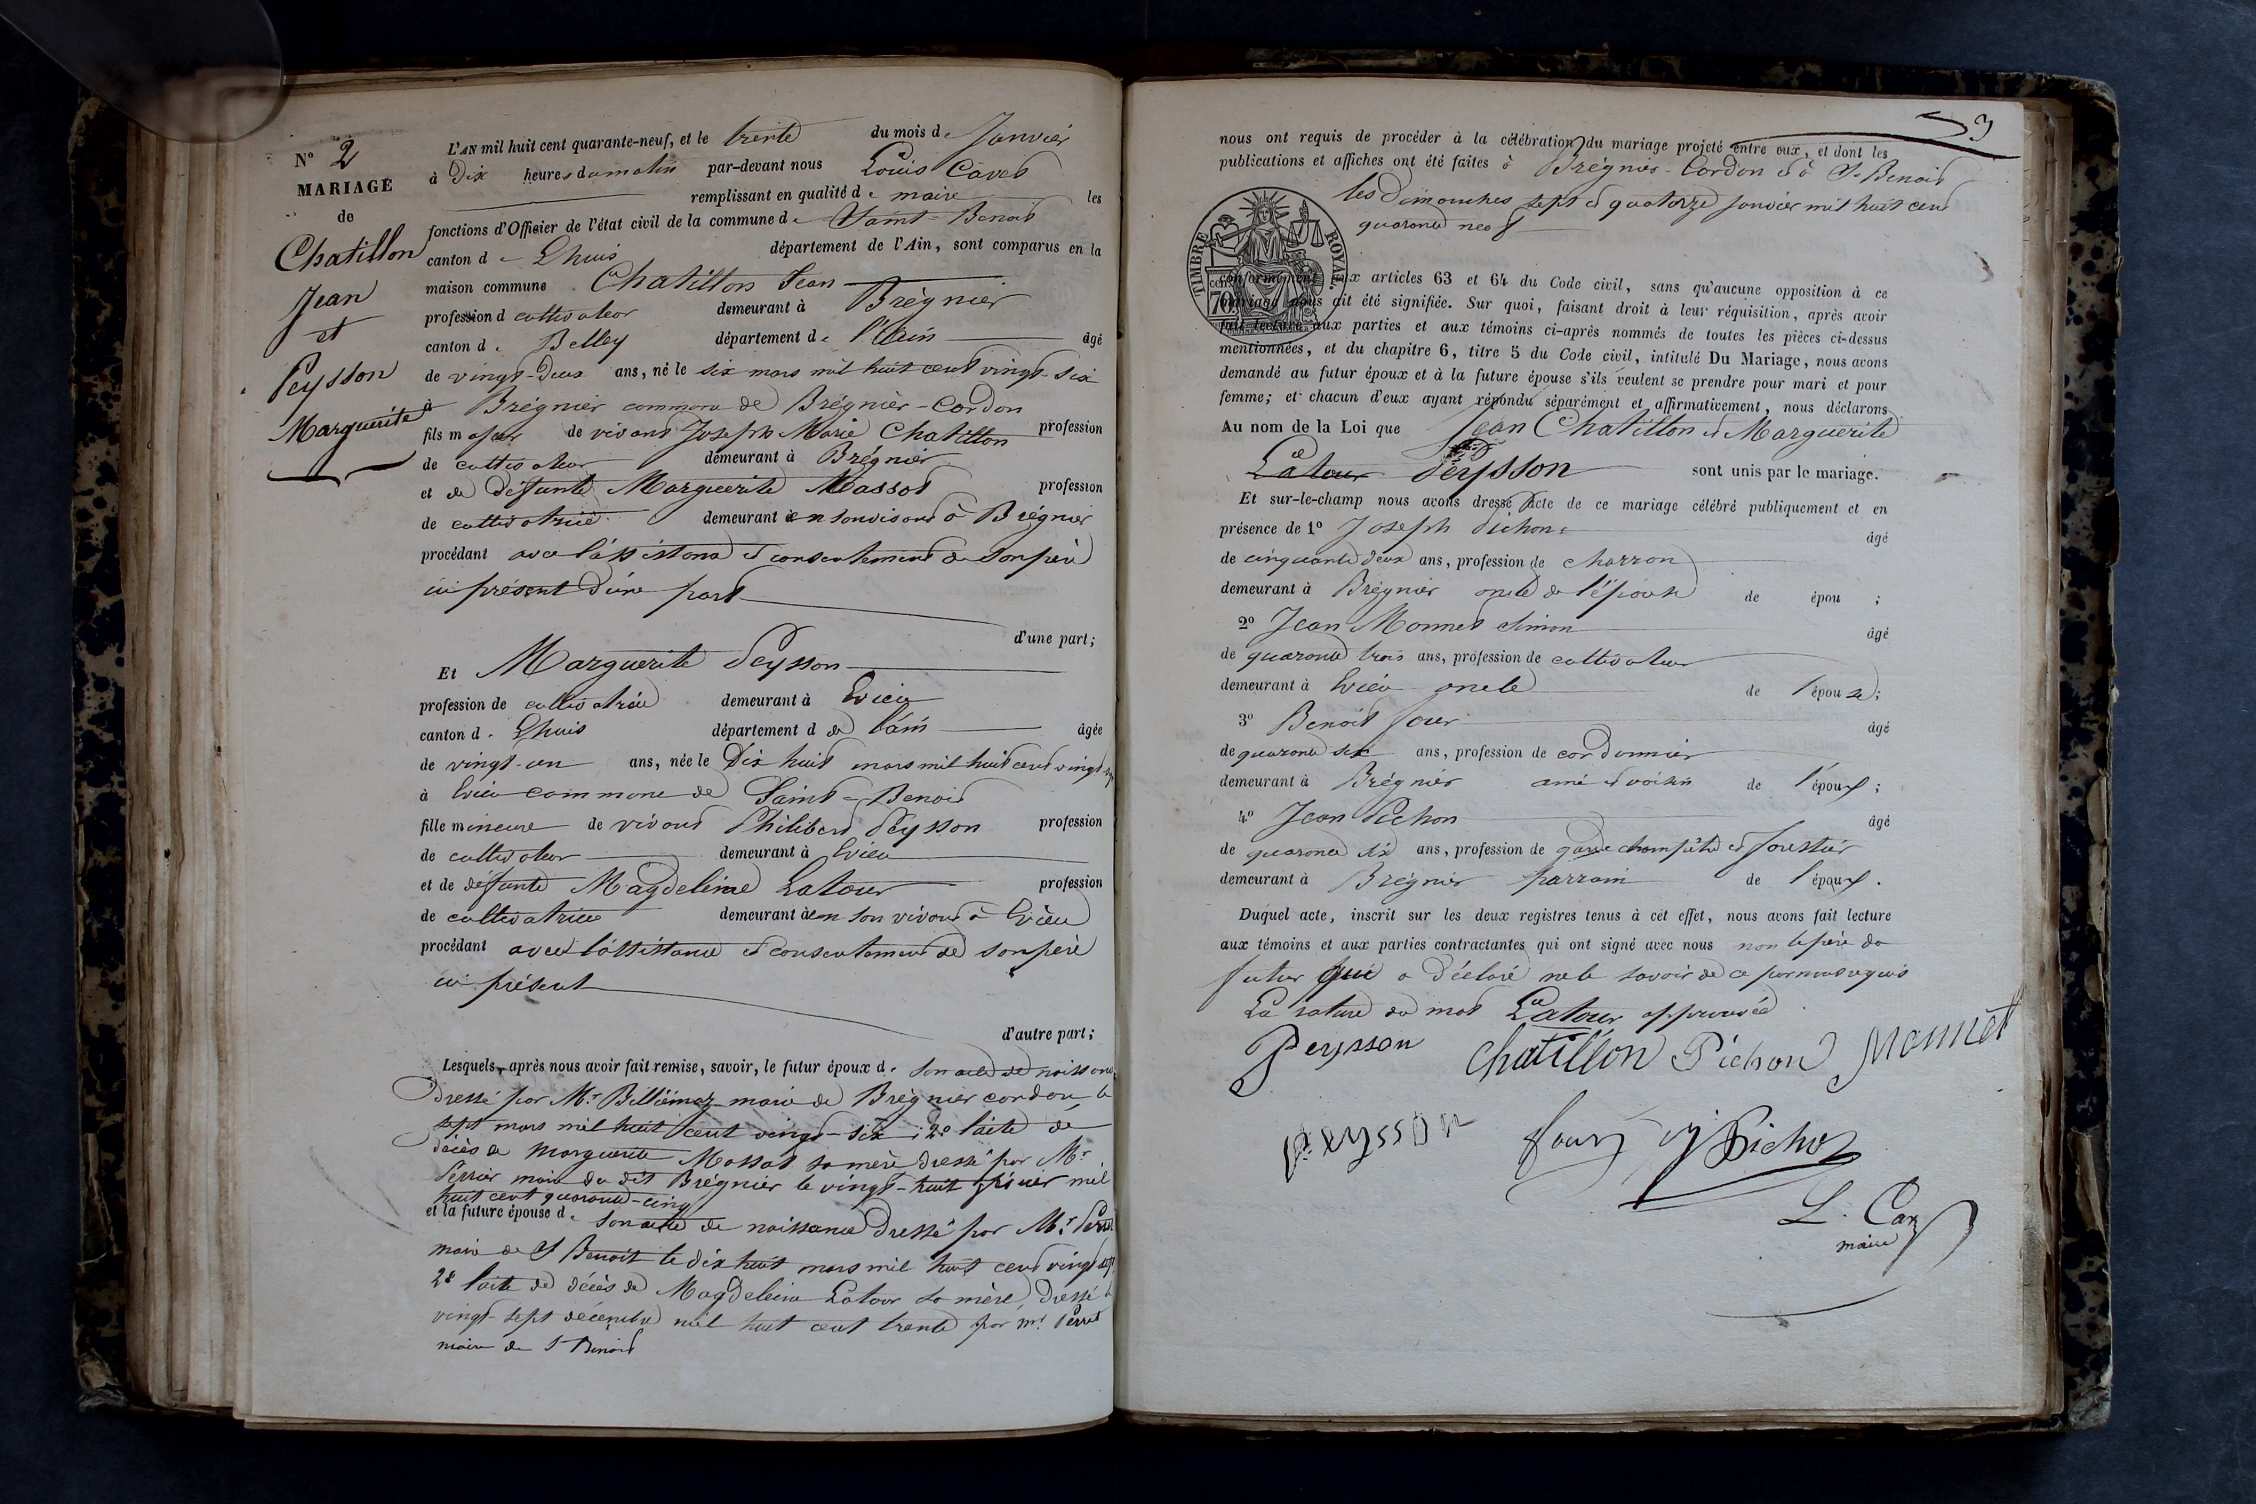 N° 2
MARIAGE
de
Chatillon
Jean
et
Peysson
Marguerite
L'AN mil huit cent quarante-neuf, et le trente du mois de Janvier
à Dix heures du matin par-devant nous Louis Cavet
remplissant en qualité de maire les
fonctions d'Officier de l'état civil de la commune de Saint-Benoit
canton d Lhuis département de l'Ain, sont comparus en la
maison commune Chatillon Jean
profession d cultivateur demeurant à Brégnier
canton d Belley département de l'Ain âgé
de vingt-deux ans, né le six mars mil huit cent vingt-six
à Brégnier commune de Brégnier-Cordon
fils majeur de vivant Joseph Marie Chatillon profession
de cultivateur demeurant à Brégnier
et de défunte Marguerite Massot profession
de cultivatrice demeurant en son vivant à Brégnier
procédant avec l'assistance et consentement de son père
ici présent d'une part
d'une part;
Et Marguerite Peysson
profession de cultivatrice demeurant à Evieu
canton d Lhuis département d de l'ain âgée
de vingt-un ans, née le Dix huit mars mil huit cent vingt sept
à Evieu commune de Saint-Benoit
fille mineure de vivant Philibert Peysson profession
de cultivateur demeurant à Evieu
et de défunte Magdeleine Latour profession
de cultivatrice demeurant à en son vivant à Evieu
procédant avec l'assistance et consentement de son père
ici présent
d'autre part;
Lesquels, après nous avoir fait remise, savoir, le futur époux d son acte de naissance
Dressé par Mr Billiémaz maire de Brégnier cordon le
sept mars mil huit cent vingt-six; 2° l'acte de
décès de Marguerite Massot sa mère dressé par Mr
Perrier maire du dit Brégnier le vingt-huit février mil
huit cent quarante-cinq
et la future épouse d son acte de naissance Dressé par Mr Perret
maire de St Benoit le dix huit mars mil huit cent vingt sept
2° l'acte de décès de Magdeleine Latour sa mère, dressé le
vingt-sept décembre mil huit cent trente par mr Perret
maire de St Benoit
3
nous ont requis de procéder à la célébration du mariage projeté entre eux, et dont les
publications et affiches ont été faites à Brégnier-Cordon et à St Benoit
les Dimanches sept et quatorze Janvier mil huit cent
quarante neuf
TIMBRE ROYAL
70
conformément aux articles 63 et 64 du Code civil, sans qu'aucune opposition à ce
mariage nous ait été signifiée. Sur quoi, faisant droit à leur réquisition, après avoir
fait lecture aux parties et aux témoins ci-après nommés de toutes les pièces ci-dessus
mentionnées, et du chapitre 6, titre 5 du Code civil, intitulé Du Mariage, nous avons
demandé au futur époux et à la future épouse s'ils veulent se prendre pour mari et pour
femme; et chacun d'eux ayant répondu séparément et affirmativement, nous déclarons
Au nom de la Loi que Jean Chatillon et Marguerite
Latour Peysson sont unis par le mariage.
Et sur-le-champ nous avons dressé Acte de ce mariage célébré publiquement et en
présence de 1° Joseph Pichon âgé
de cinquante deux ans, profession de charron
demeurant à Brégnier oncle de l'époux de épou ;
2° Jean Monnet Simon âgé
de quarante trois ans, profession de cultivateur
demeurant à Evieu oncle de l'épouse;
3° Benoit âgé
de quarante six ans, profession de cordonnier
demeurant à Brégnier ami et voisin de l'époux;
4° Jean Pichon âgé
de quarante six ans, profession de garde champêtre et forestier
demeurant à Brégnier parrain de l'époux.
Duquel acte, inscrit sur les deux registres tenus à cet effet, nous avons fait lecture
aux témoins et aux parties contractantes qui ont signé avec nous non le père du
futur qui a déclaré ne le savoir de ce par nous requis
La rature du mot Latour approuvée
Peysson Chatillon Pichon Monnet
Peysson Pichon
L. Cavet
maire